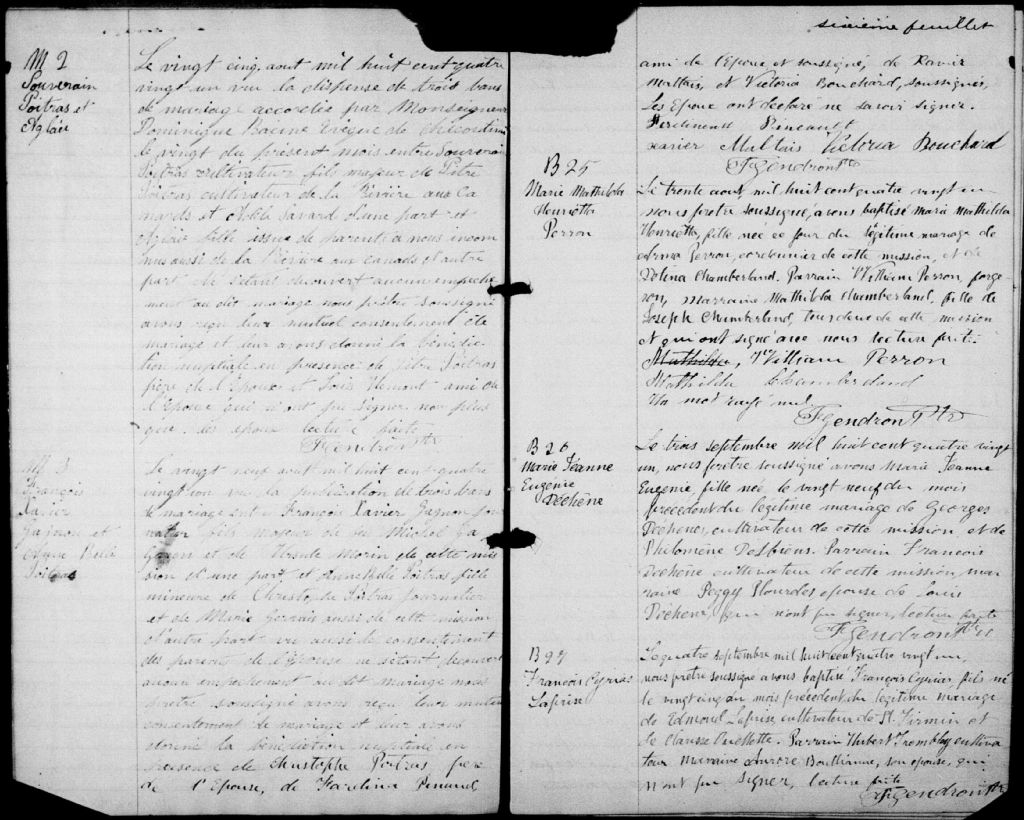 M 2
Souverain
Poitras et
Aglaié
Le vingt cinq aout mil huit cent quatre
vingt un vu la dispense de trois bans
de mariage accordée par Monseigneur
Dominique Racine Evêque de Chicoutimi
le vingt du présent mois entre Souverain
Poitras cultivateur fils majeur de Pitre
Poitras cultivateur de la Rivière aux Ca
nards et Savard d'une part et
Aglaié fille issue de parents à nous incon
nus aussi de la Rivière aux canards d'autre
part ne s'étant découvert aucun empêche
ment au dit mariage nous prêtre soussigné
avons reçu leur mutuel consentement de
mariage et leur avons donné la bénédic
tion nuptiale en présence de Pitre Poitras
père de l'Epoux et Louis ami de
l'Epouse qui n'ont pu signer non plus
que les époux lecture faite
F Gendron Ptre
M 3
François
Xavier
Gagnon et
Belle
Poitras
Le vingt neuf aout mil huit cent quatre
vingt un vu la publication de trois bans
de mariage entre François Xavier Gagnon jour
nalier fils majeur de feu Michel Ga
gnon et de Morin de cette mis
sion d'une part, et Poitras fille
mineure de Christophe Poitras journalier
et de Marie Gervais aussi de cette mission
d'autre part vu aussi le consentement
des parents de l'épouse ne s'étant découvert
aucun empêchement au dit mariage nous
prêtre soussigné avons reçu leur mutuel
consentement de mariage et leur avons
donné la bénédiction nuptiale en
présence de Christophe Poitras père
de l'Epouse, de Pineault
sixième feuillet
ami de l'Epoux et soussigné, de Xavier
Maltais, et Victoria Bouchard, soussignés,
Les Epoux ont déclaré ne savoir signer.
Ferdinand Pineault
xavier Maltais Victoria Bouchard
F Gendron Ptre
B 25
Marie Mathilda
Henriette
Perron
Le trente aout, mil huit cent quatre vingt un
nous prêtre soussigné, avons baptisé Marie Mathilda
Henriette, fille née ce jour du légitime mariage de
Perron, cordonnier de cette mission, et de
Chamberland. Parrain William Perron, forge
ron, Marraine Mathilda Chamberland, fille de
Joseph Chamberland, tous deux de cette mission
et qui ont signé avec nous lecture faite.
Mathilda, William Perron
Mathilda Chamberland
Un mot rayé nul
F Gendron Ptre
B 26
Marie Jeanne
Eugénie
Dechêne
Le trois septembre mil huit cent quatre vingt
un, nous prêtre soussigné avons Marie Jeanne
Eugénie fille née le vingt neuf du mois
précédent du légitime mariage de Georges
Dechênes, cultivateur de cette mission, et de
Philomène Desbiens. Parrain François
Dechêne cultivateur de cette mission, mar
raine Peggy Plourdes épouse de Louis
Dechene, qui n'ont pu signer, lecture faite
F Gendron Ptre
B 27
François Cyrias
Laprise
Le quatre septembre mil huit cent quatre vingt un,
nous prêtre soussigné avons baptisé François Cyrias, fils né
le vingt cinq du mois précédent du légitime mariage
de Edmond Laprise cultivateur de St Firmin et
de Clarisse Ouellette. Parrain Hubert Tremblay cultiva
teur Marraine Aurore Bouthianne, son épouse, qui
n'ont pu signer, lecture faite
F Gendron Ptre